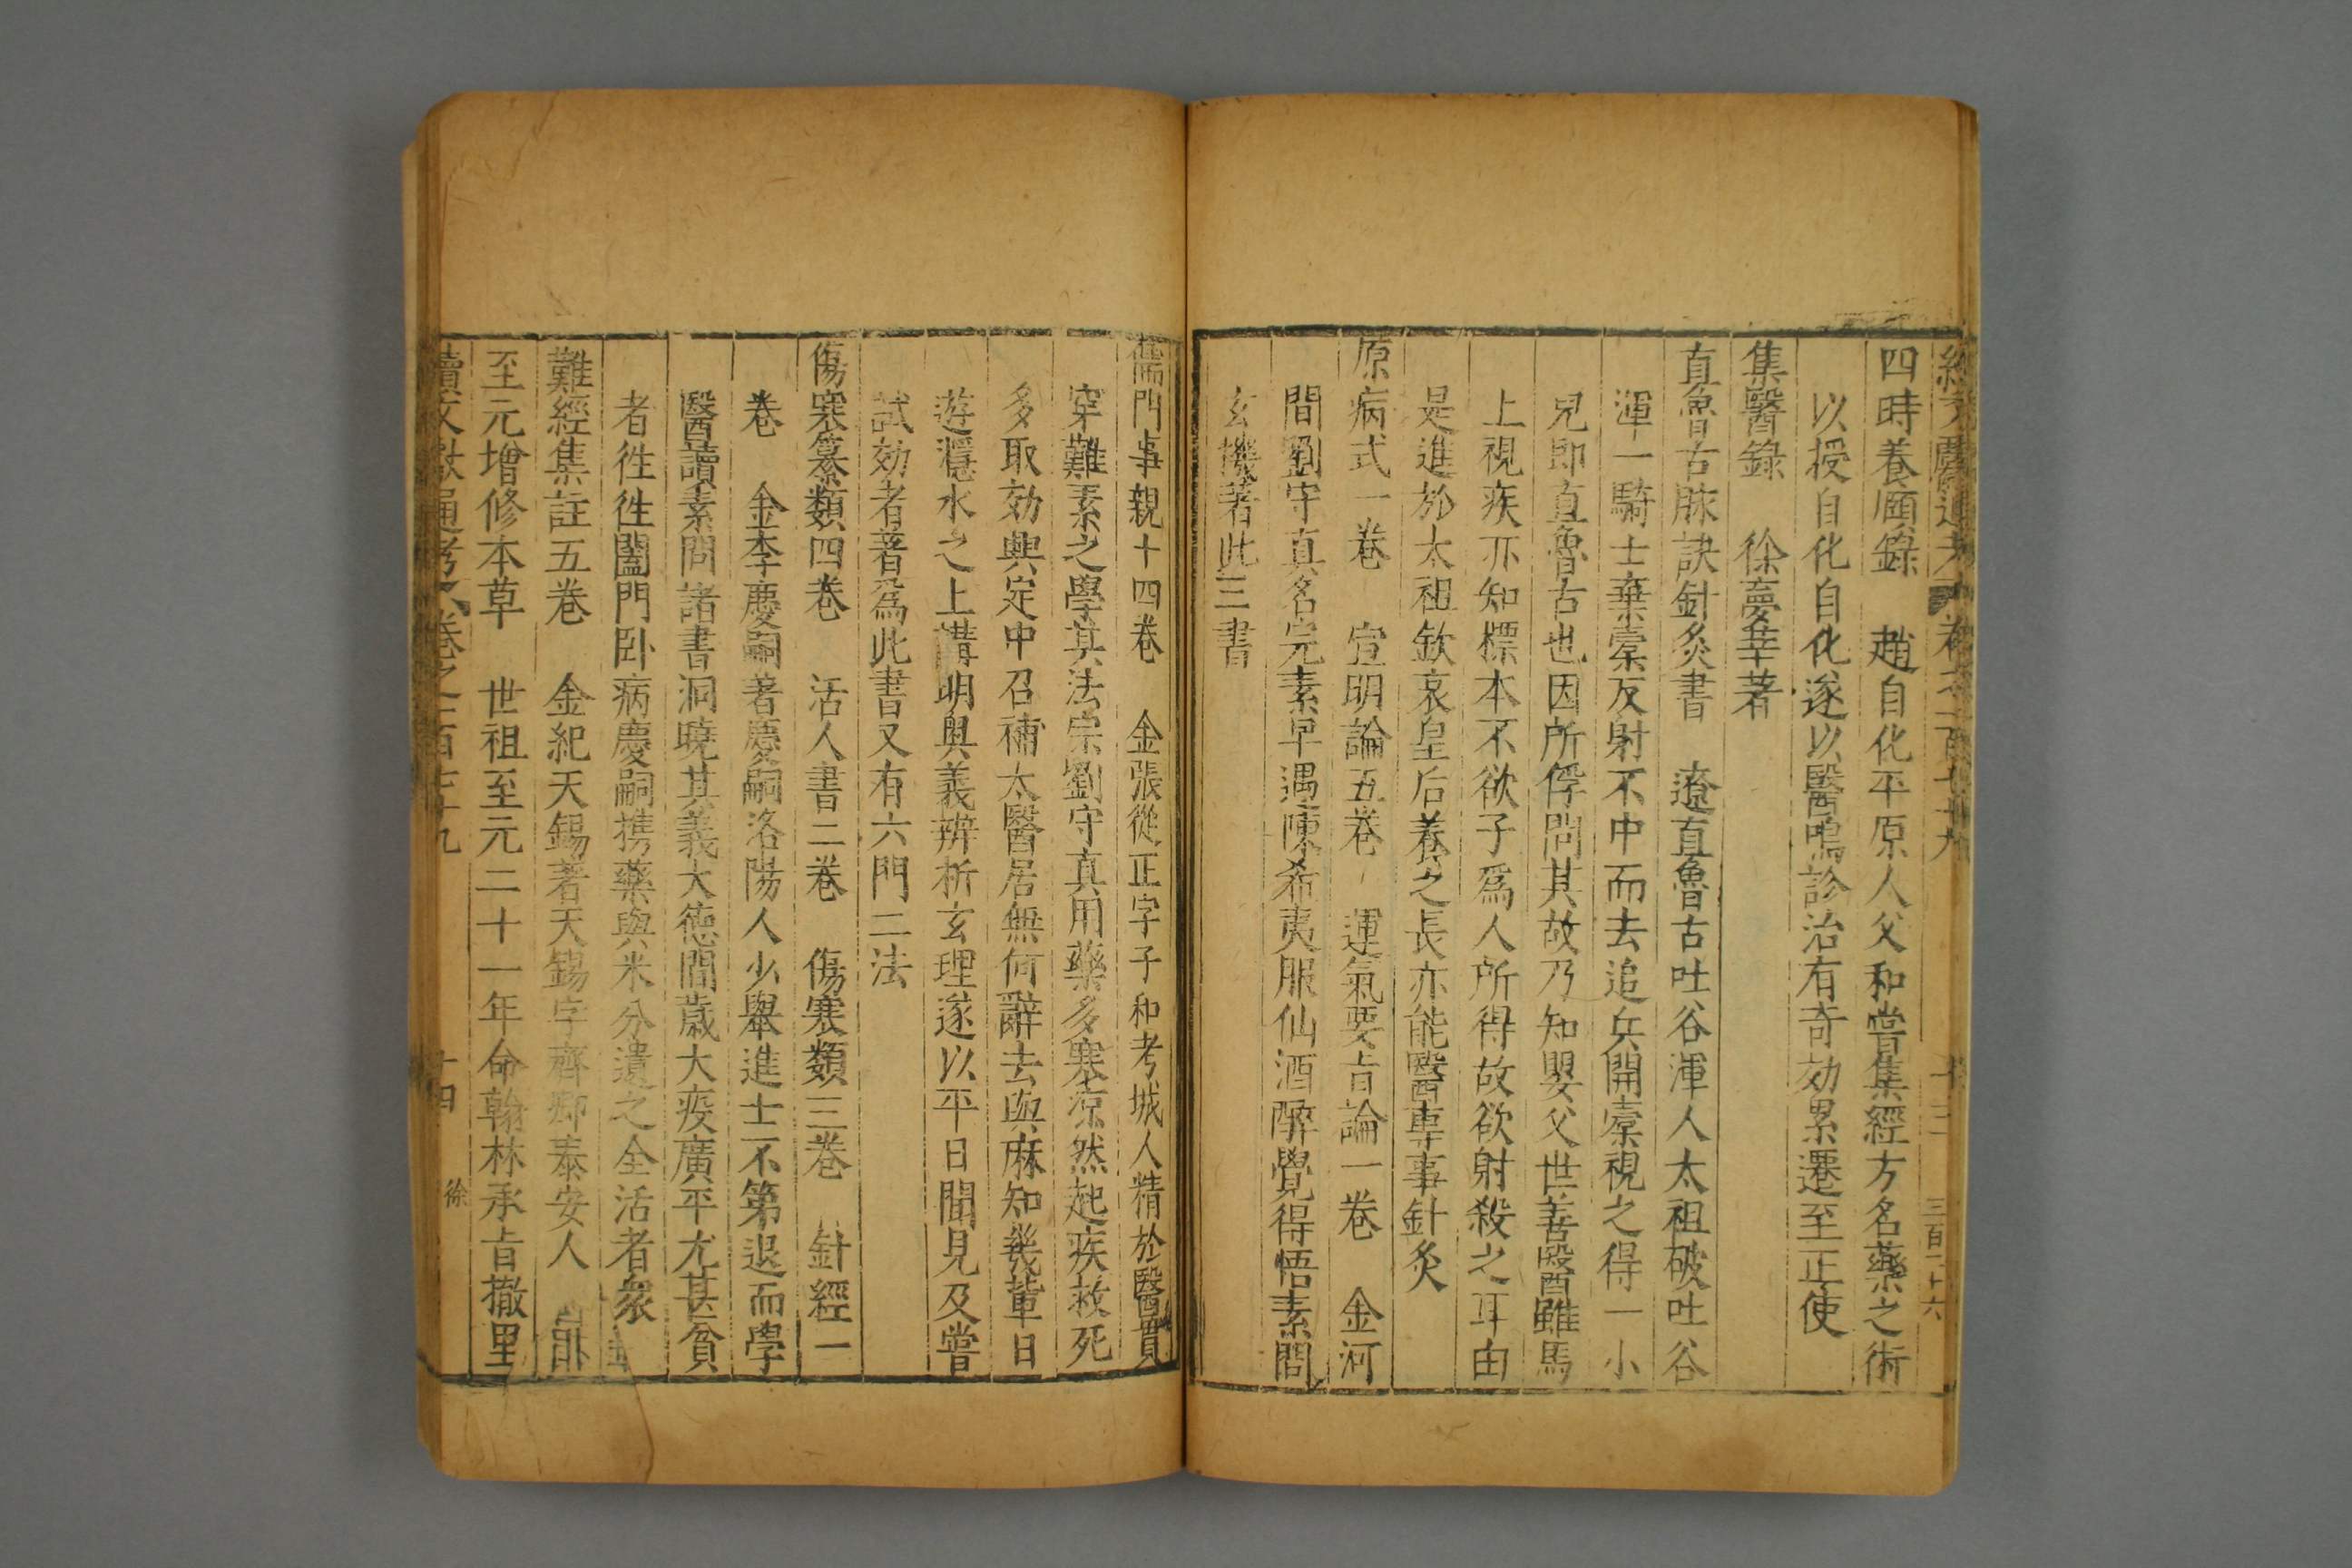 四時養頤錄　趙自化平原人父和嘗集經方名藥之術
以授自化自化遂以醫鳴診治有奇効累遷至正使
集醫錄　徐夢莘著
直魯古脉訣針灸書　遼直魯古吐谷渾人太祖破吐谷
渾一騎士棄橐反射不中而去追兵開橐視之得一小
兒即直魯古也因所俘問其故乃知嬰父世善醫雖馬
上視疾亦知標本不欲子爲人所得故欲射殺之耳由
是進於太祖欽哀皇后養之長亦能醫專事針灸
原病式一卷　宣明論五卷　運氣要旨論一卷　金河
間劉守真名完素早遇陳希夷服仙酒醉覺得悟素問
玄機著此三書
儒門事親十四卷　金張從正字子和考城人精於醫貫
穿難素之學其法宗劉守真用藥多寒凉然起疾救死
多取効興定中召補太醫居無何辭去與麻知幾輩日
遊㶏水之上講明奧義辨析玄理遂以平日聞見及嘗
試効者著爲此書又有六門二法
傷寒纂類四卷　活人書二卷　傷寒類三卷　針經一
卷　金李慶嗣著慶嗣洛陽人少舉進士不第退而學
醫讀素問諸書洞曉其義天德間歲大疫廣平尤甚貧
者徃徃闔門卧病慶嗣携藥與米分遺之全活者衆
難經集註五卷　金紀天錫著天錫字齊卿泰安人
至元增修本草　世祖至元二十一年命翰林承旨撒里
續文獻通考　卷之一百七十九　十四　徐